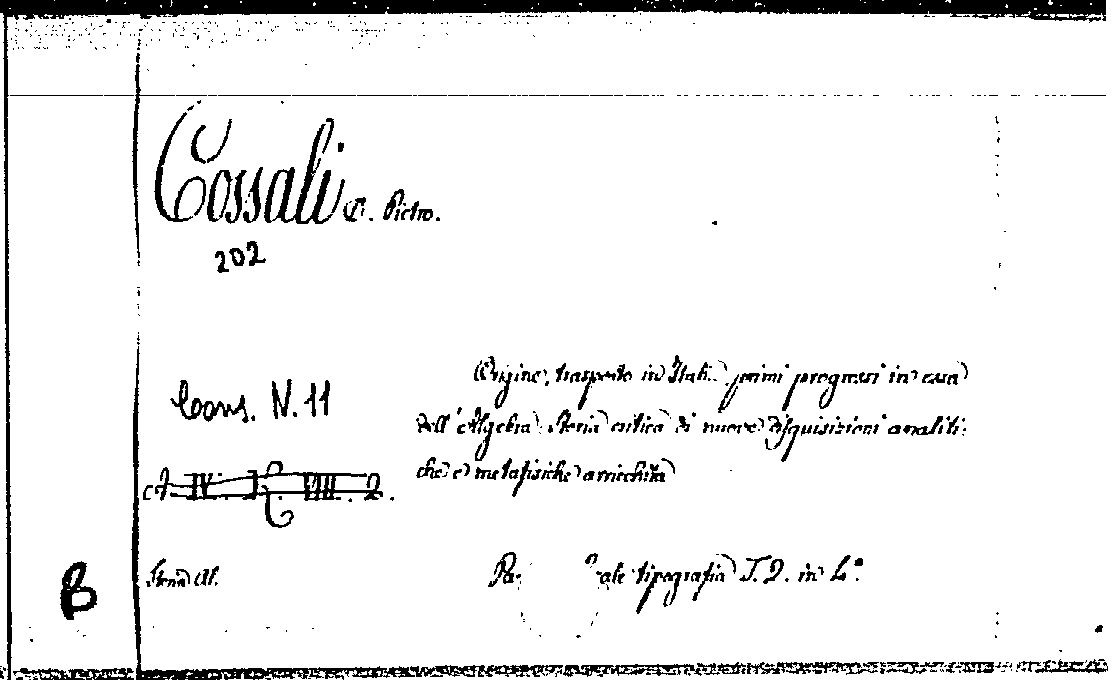 Cossali P. Pietro.
202
Cons. N. 11
Origine, trasporto in Itali primi progressi in essa
dell'Algebra. Storia critica di nuove disquisizioni analiti-
che e metafisiche arricchita
A IV. VIII. 2.
B
Pa ale tipografia T. 2. in 4.°